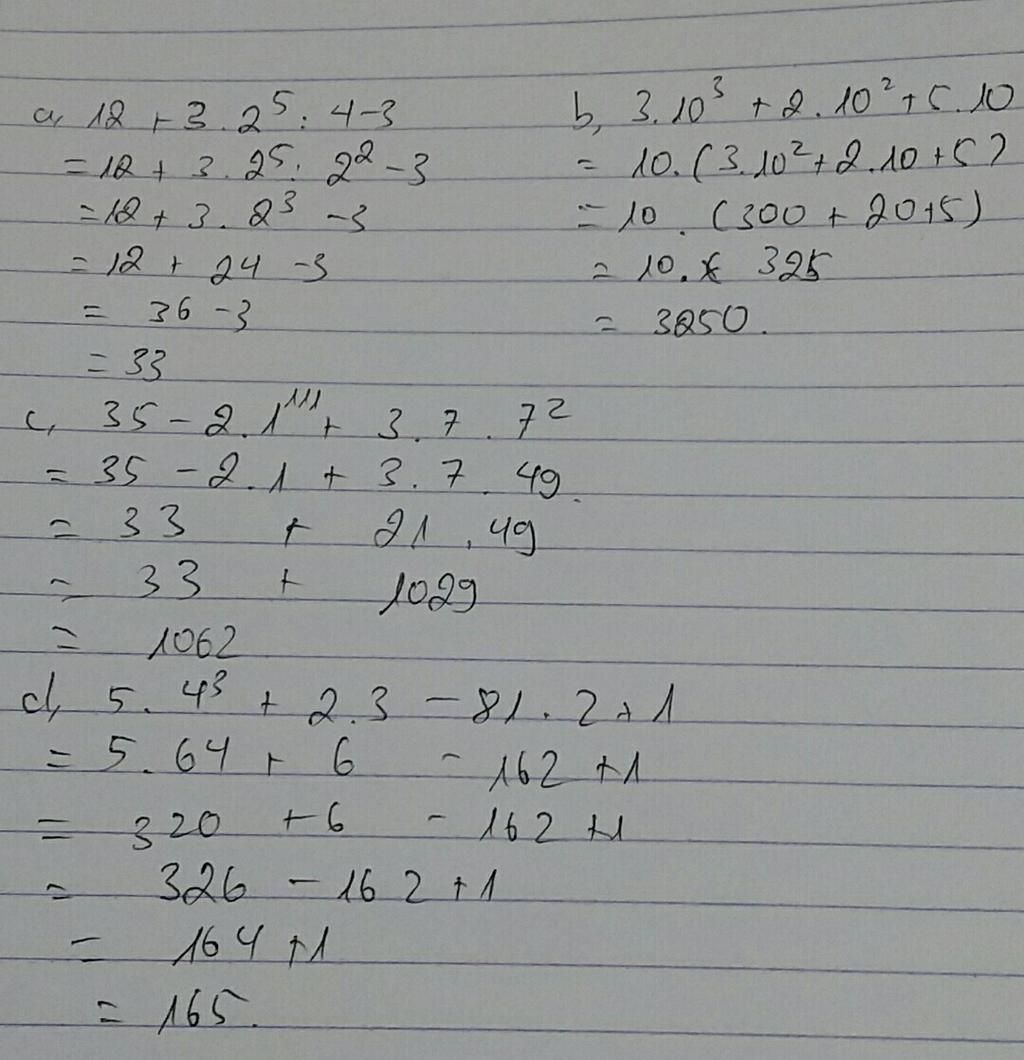 a, 12 + 3 . 2⁵ : 4 - 3
= 12 + 3 . 2⁵ : 2² - 3
= 12 + 3 . 2³ - 3
= 12 + 24 - 3
= 36 - 3
= 33
b, 3.10³ + 2.10² + 5.10
= 10.(3.10² + 2.10 + 5)
= 10 . (300 + 20 + 5)
= 10. 325
= 3250.
c, 35 - 2.1¹¹¹ + 3 . 7 . 7²
= 35 - 2.1 + 3 . 7 . 49
= 33 + 21 . 49
= 33 + 1029
= 1062
d, 5 . 4³ + 2.3 - 81 . 2 + 1
= 5 . 64 + 6 - 162 + 1
= 320 + 6 - 162 + 1
= 326 - 162 + 1
= 164 + 1
= 165.